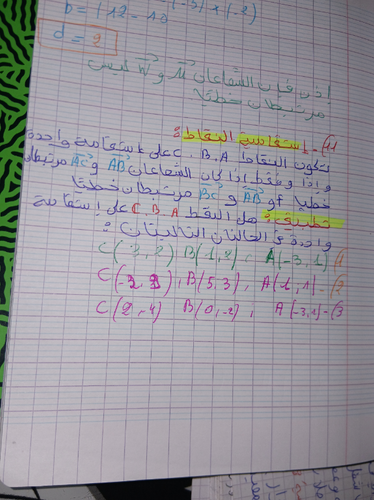 b = (12 - 10 (-3) x (-2)
d = 2
إذن فإن الشعاعان u و w ليس
مرتبطان خطيا
11)- إستقامية النقاط:
تكون النقاط C . B . A على إستقامة واحدة
وإذا وفقط إذا كان الشعاعان AB و AC مرتبطان
خطيا أو AB و BC مرتبطان خطيا
تطبيق: هل النقط C . B . A على إستقامة
واحدة في الحالتان التاليتان:
1) A(-3,1) B(1,2) C(-3,2)
2)- A(1,1), B(5,3), C(-3,
3)- A(-3,1) B(0,-2) C(2,-4)